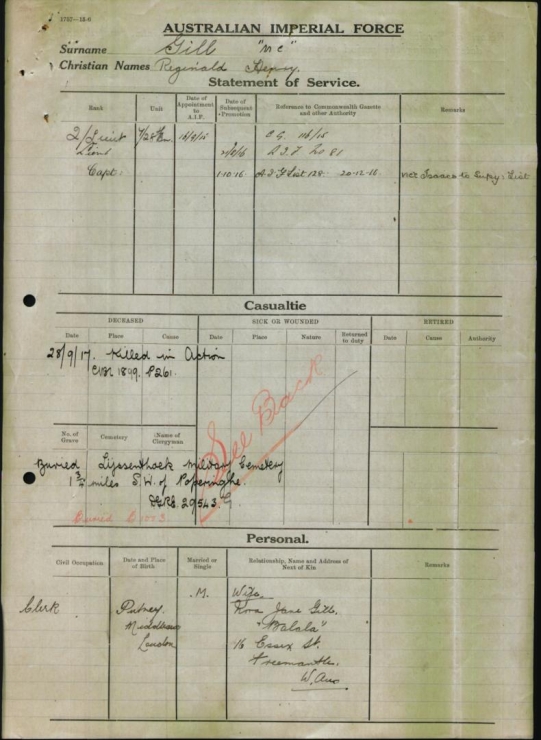 1757—12.6
AUSTRALIAN IMPERIAL FORCE
Surname Gill "M C"
Christian Names Reginald Henry.
Statement of Service.
Rank
Unit
Date of Appointment to A.I.F.
Date of Subsequent Promotion
Reference to Commonwealth Gazette and other Authority
Remarks
2/Lieut 7/28 Bn. C.G.
Lieut A.I.F. No 81
Capt: 1-10-16 A.I.F. List 128. 20-12-16
Casualtie
DECEASED
SICK OR WOUNDED
RETIRED
Date Place Cause
Date Place Nature Returned to duty
Date Cause Authority
28/9/17. Killed in Action
1899. P261.
See Back
No. of Grave Cemetery Name of Clergyman
Buried Lijssenthoek Military Cemetery
1 3/4 miles S.W. of Poperinghe.
29543
Personal.
Civil Occupation
Date and Place of Birth
Married or Single
Relationship, Name and Address of Next of Kin
Remarks
Clerk
Putney
Middlesex
London
M.
Wife
Jane Gill,
16 Essex St.
Freemantle.
W. Aus